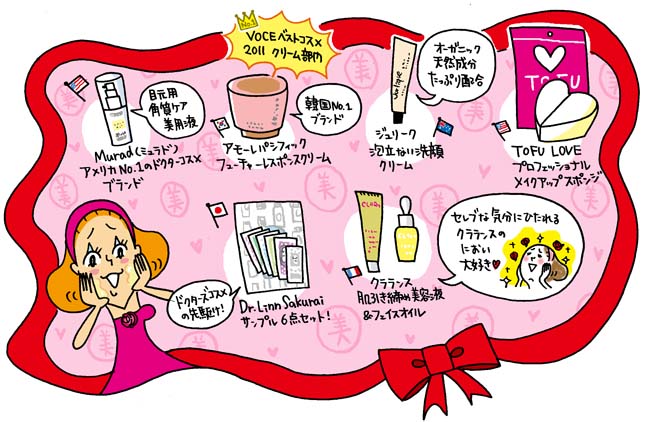 No.1
VOCEベストコスメ
2011 クリーム部門
目元用
角質ケア
美用液
Murad(ミュラド)
アメリカNo.1のドクターコスメ
ブランド
韓国No.1
ブランド
アモーレパシフィック
フューチャーレスポンスクリーム
オーガニック
天然成分
たっぷり配合
ジュリーク
泡立ない洗顔
クリーム
TOFU
TOFU LOVE
プロフェッショナル
メイクアップスポンジ
ドクターズコスメ
の先駆け!
Dr.Linn Sakurai
サンプル6点セット!
クラランス
肌引き締め美容液
&フェイスオイル
セレブな気分にひたれる
クラランスの
におい
大好き♥
美
美
美
美
美
美